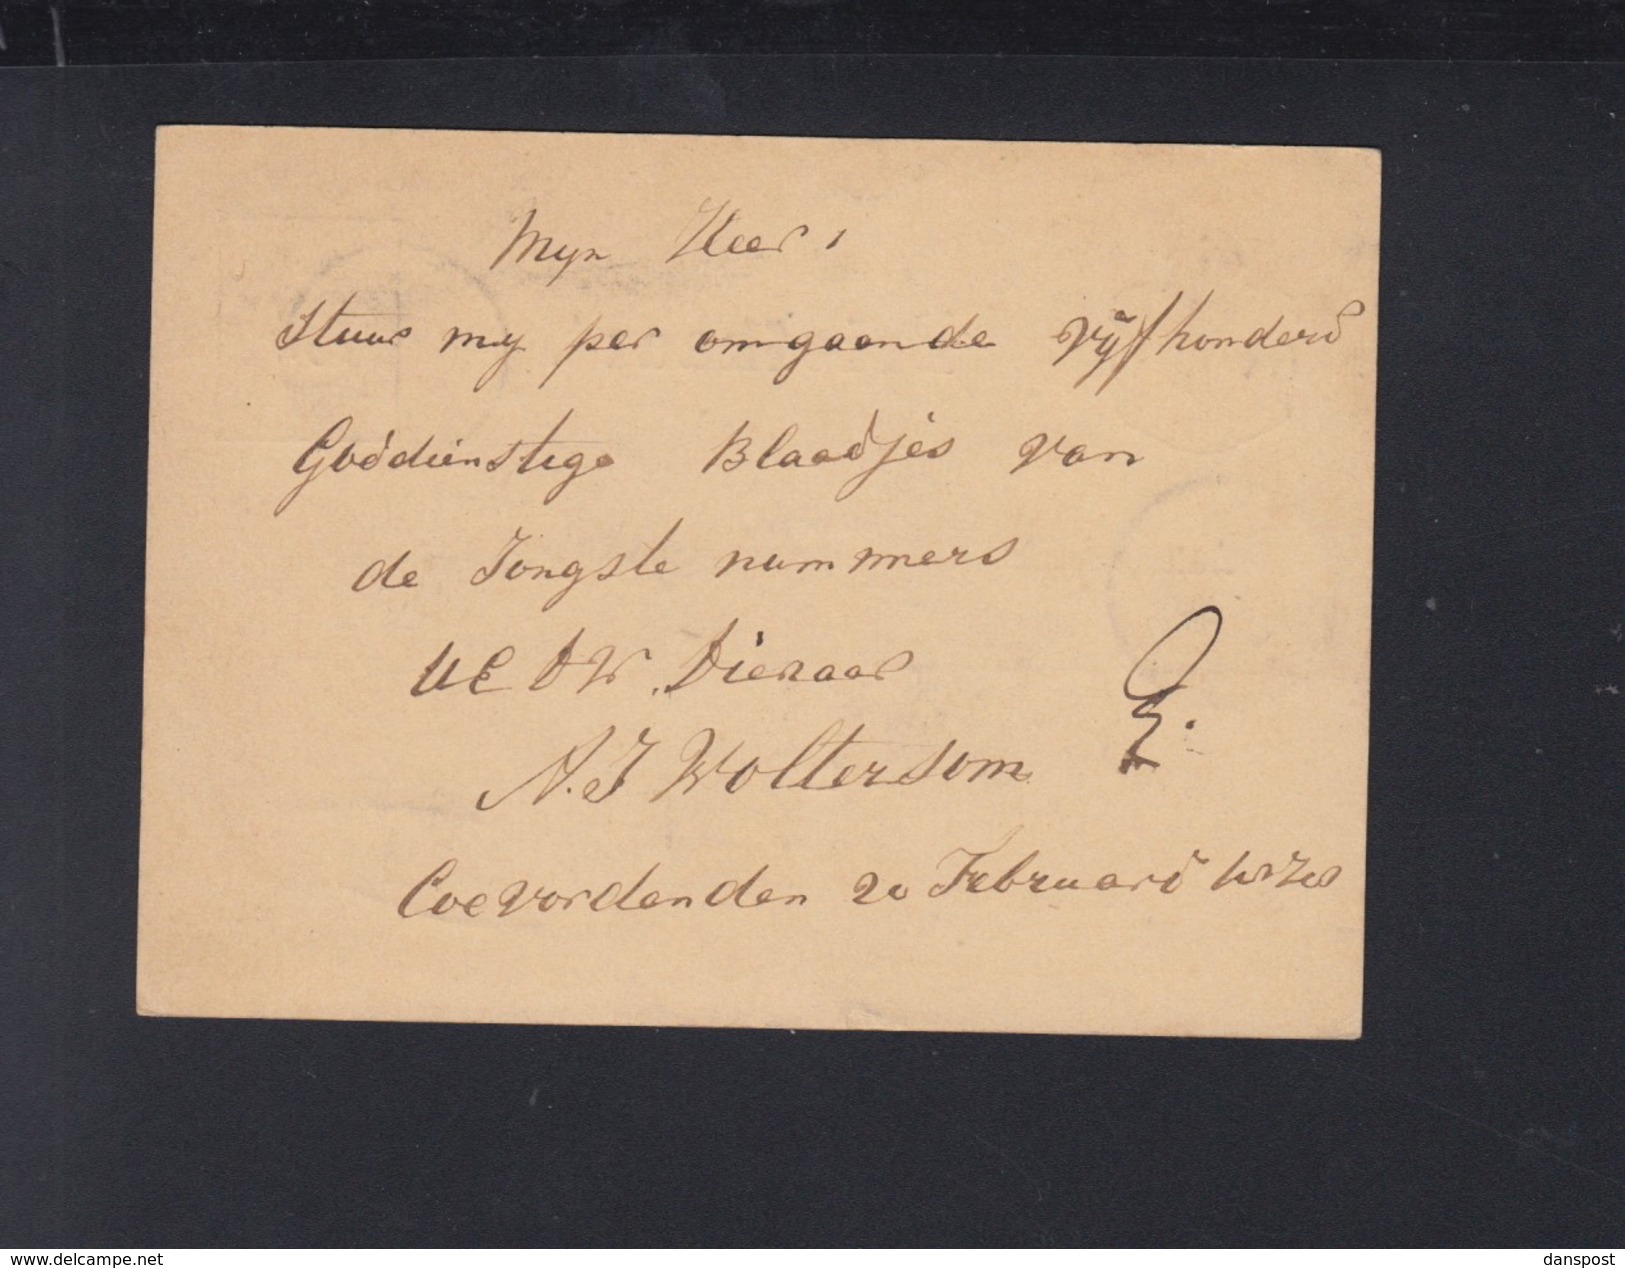 Myn Heer,
Stuur my per omgaande vyfhonderd
Goddienstige Blaadjes van
de Jongste nummers
UE DW. Dienaar
A. J Woltersom
Coevorden den 20 Februari
www.delcampe.net
danspost